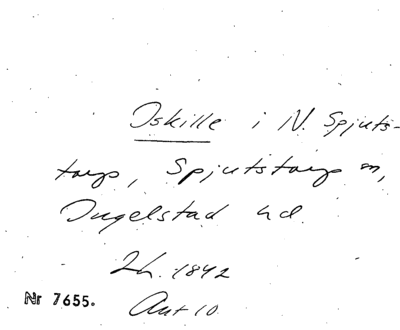 Oskille i N. Spjuts-
torp, Spjutstorps sn,
Ingelstad hd
Lh. 1842
Akt 10
Nr 7655.